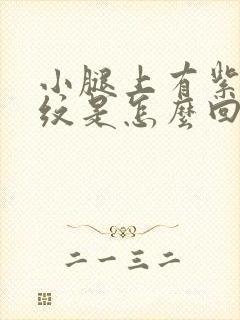 小腿上有紫
纹是怎麼回
二一三二